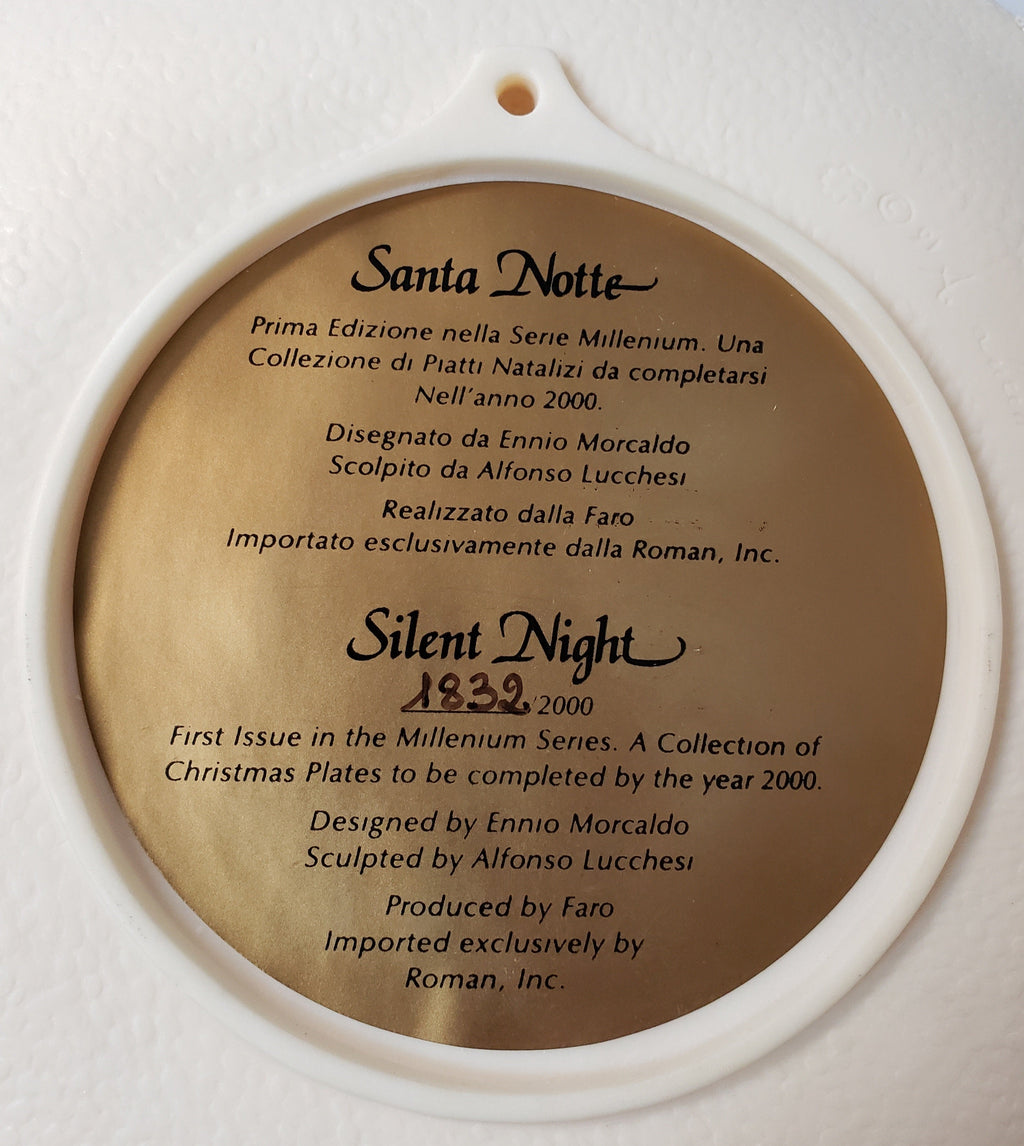 Santa Notte
Prima Edizione nella Serie Millenium. Una
Collezione di Piatti Natalizi da completarsi
Nell'anno 2000.
Disegnato da Ennio Morcaldo
Scolpito da Alfonso Lucchesi
Realizzato dalla Faro
Importato esclusivamente dalla Roman, Inc.
Silent Night
1832/2000
First Issue in the Millenium Series. A Collection of
Christmas Plates to be completed by the year 2000.
Designed by Ennio Morcaldo
Sculpted by Alfonso Lucchesi
Produced by Faro
Imported exclusively by
Roman, Inc.